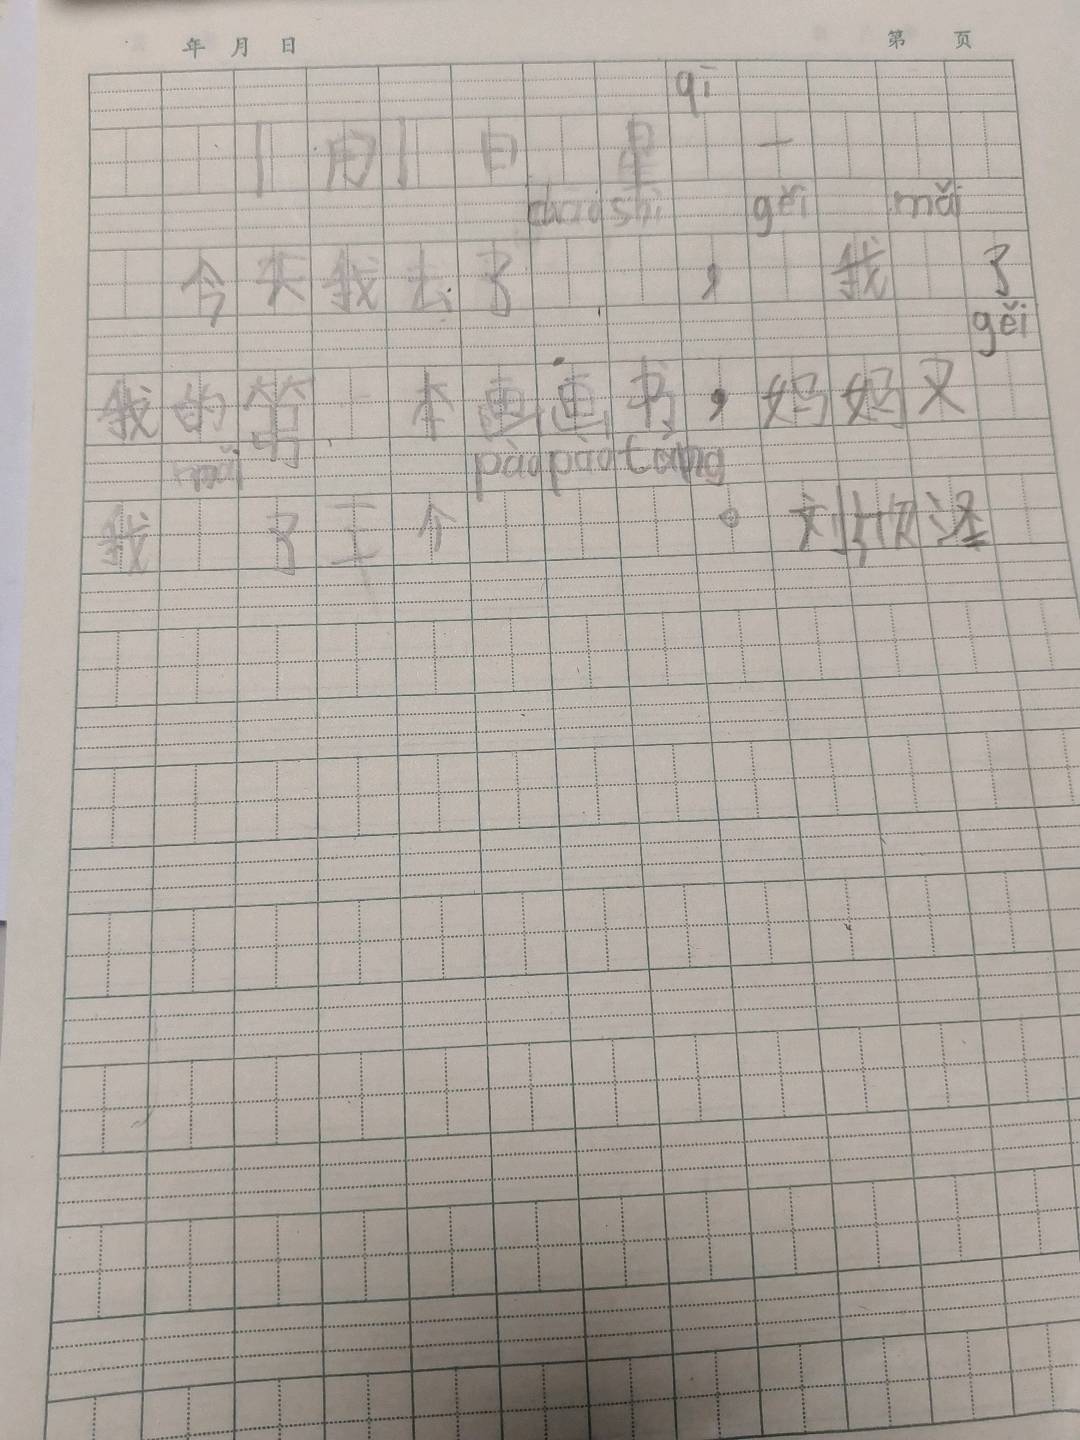 年 月 日 第 页
qī
11月11日 星 一
chāo shì gěi mǎi
今天我去了 , 我 了
gěi
我的第一本画画书,妈妈又
mǎi pào pào táng
我 了三个 。刘